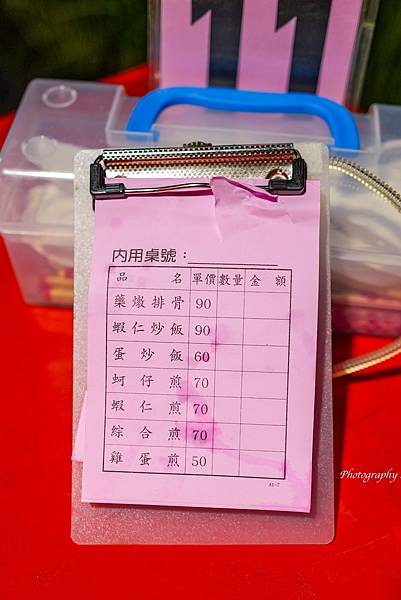 11
内用桌號：
品 名 單價 數量 金 額
藥燉排骨 90
蝦仁炒飯 90
蛋炒飯 60
蚵仔煎 70
蝦仁煎 70
綜合煎 70
雞蛋煎 50
A1-7
Photography